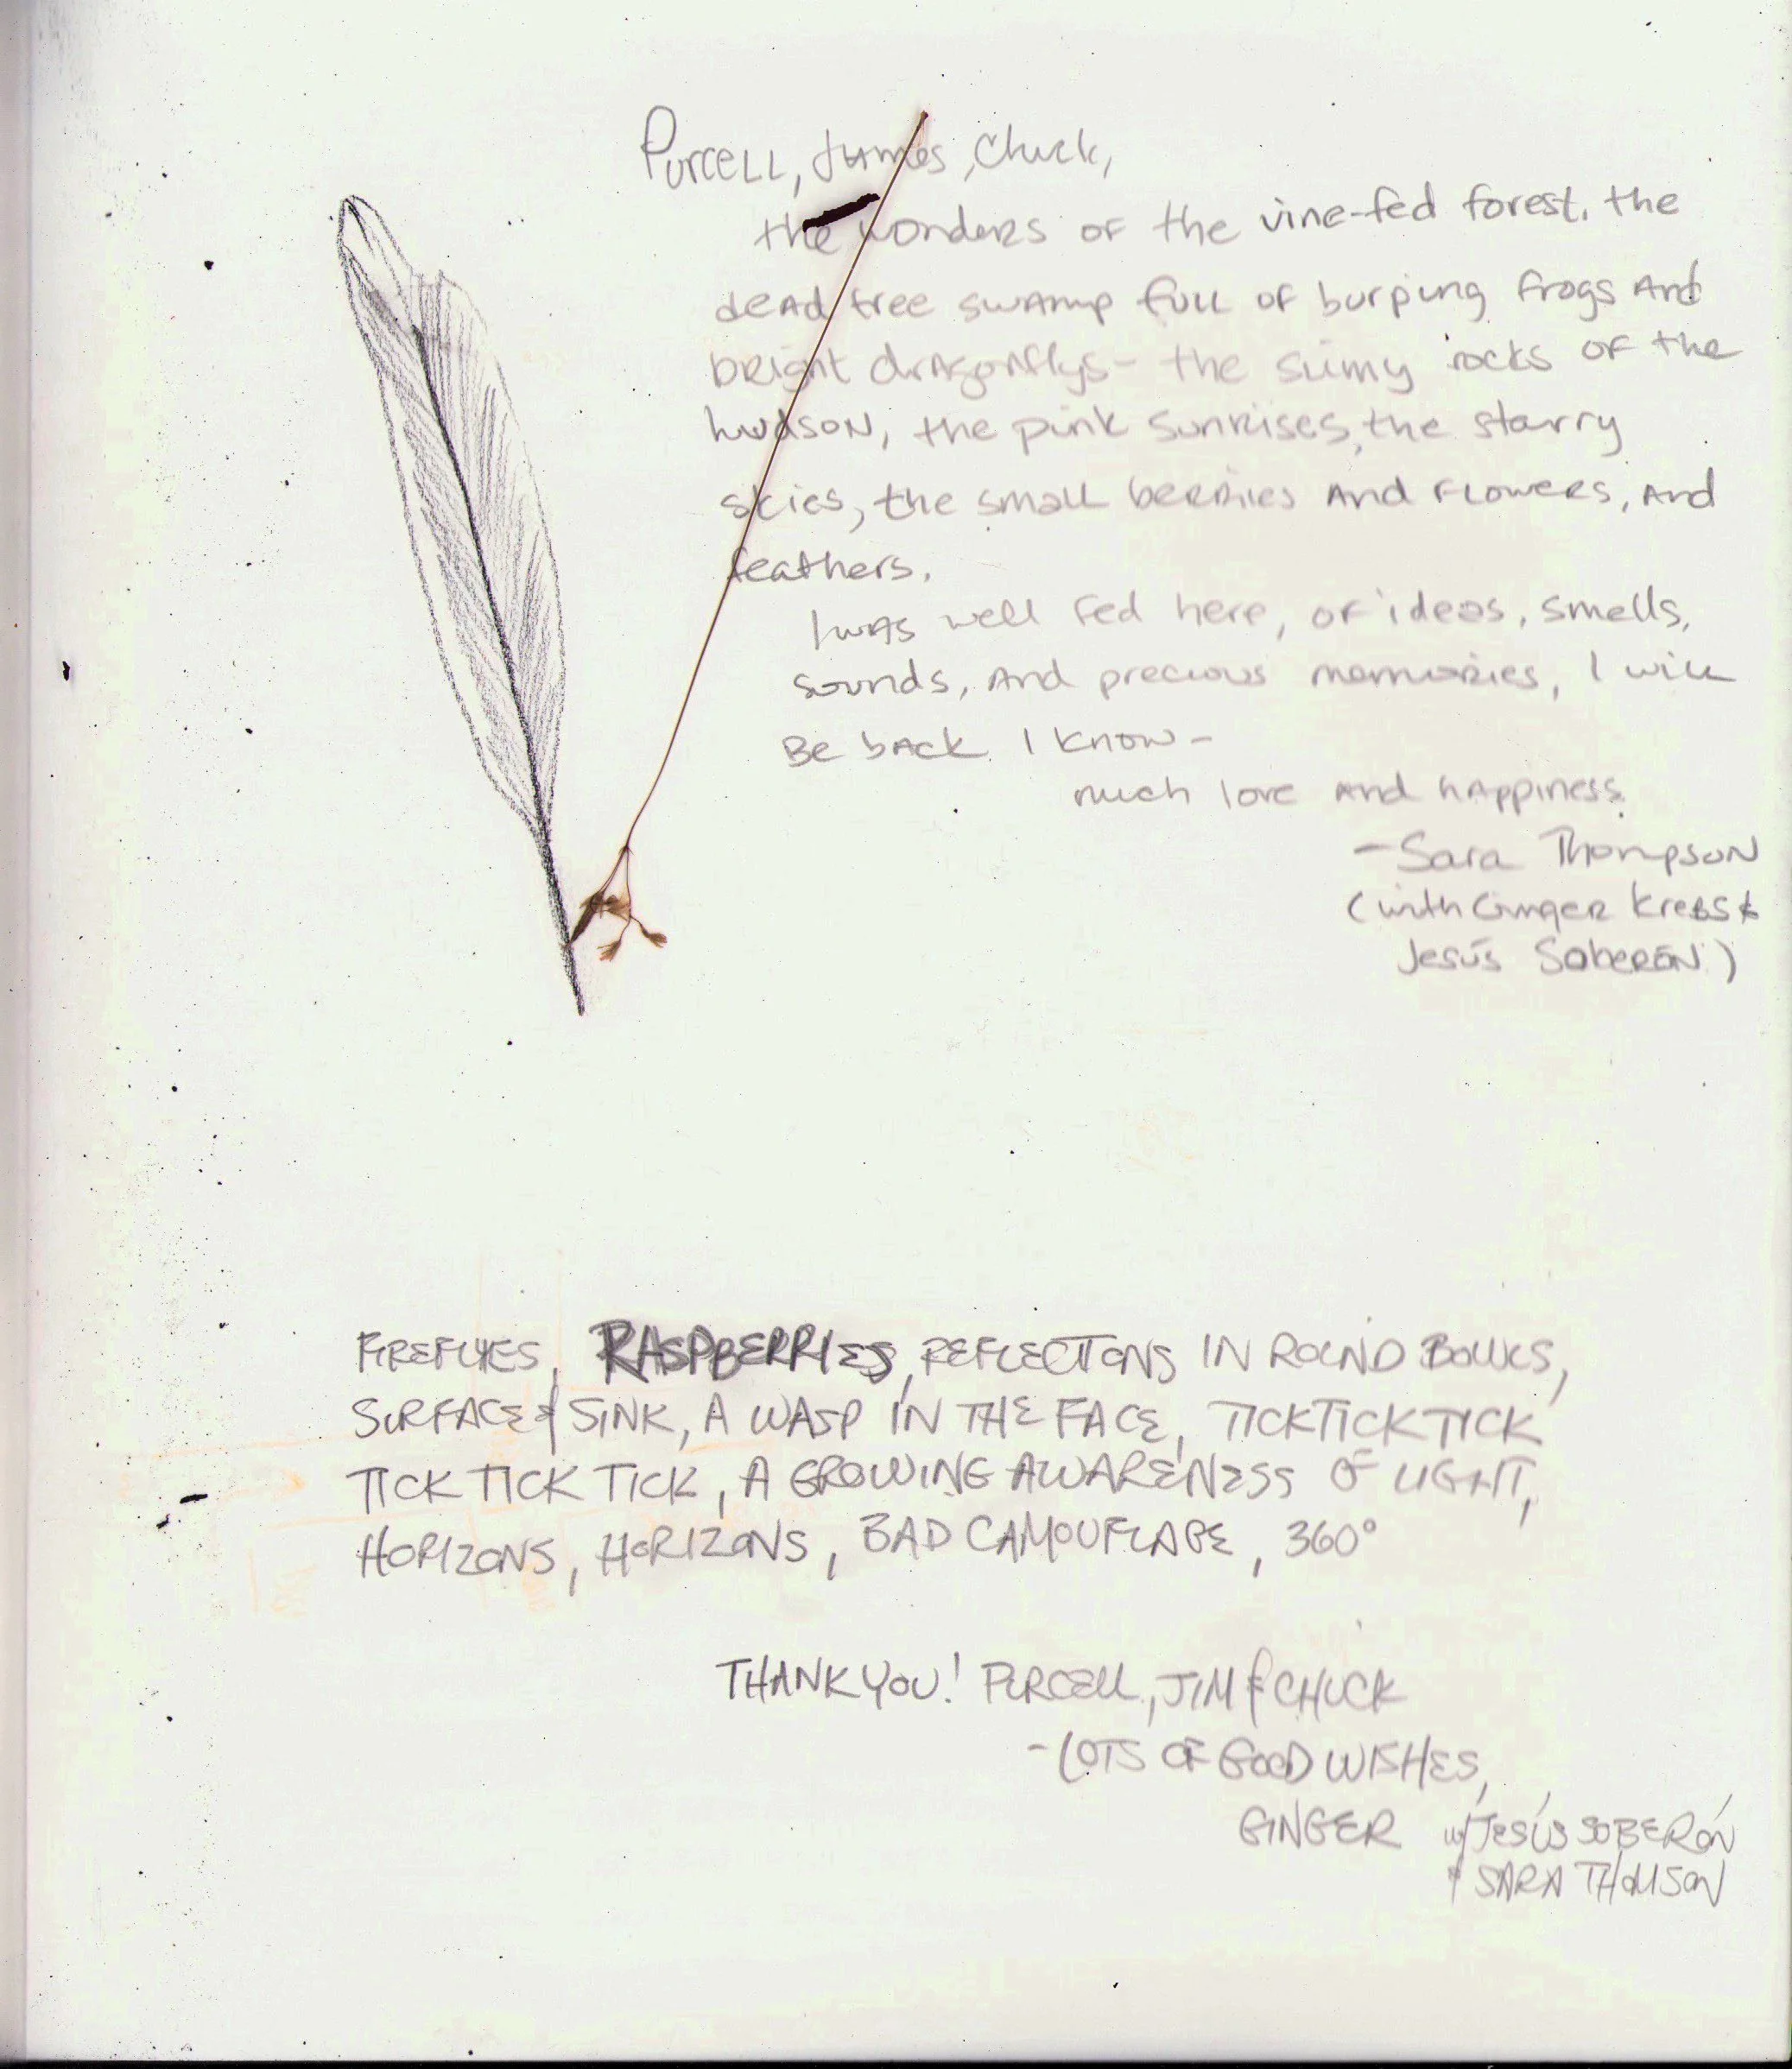 Purcell, James, Chuck,
the wonders of the vine-fed forest. the
dead tree swamp full of burping frogs and
bright dragonflys - the slimy rocks of the
hudson, the pink sunrises, the starry
skies, the small berries and flowers, and
feathers.
I was well fed here, of ideas, smells,
sounds, and precious memories, I will
Be back I know -
much love and happiness.
- Sara Thompson
(with Ginger Krebs &
Jesús Soberón)
FIREFLYES, RASPBERRIES, REFLECTIONS IN ROUND BOWLS,
SURFACE & SINK, A WASP IN THE FACE, TICK TICK TICK
TICK TICK TICK, A GROWING AWARENESS OF LIGHT,
HORIZONS, HORIZONS, BAD CAMOUFLAGE, 360°
THANK YOU! PURCELL, JIM & CHUCK
- LOTS OF GOOD WISHES,
GINGER w/ JESÚS SOBERÓN
& SARA THOMSON